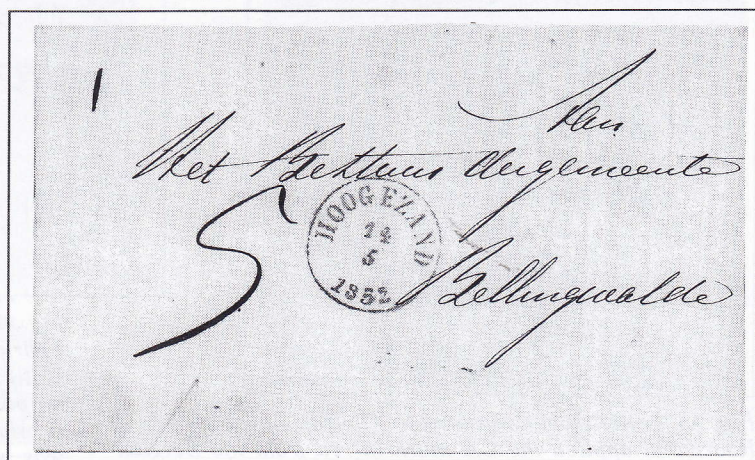 1
Aan
Het Bestuur der gemeente
5
HOOGEZAND
14
5
1852
Bellingwalde